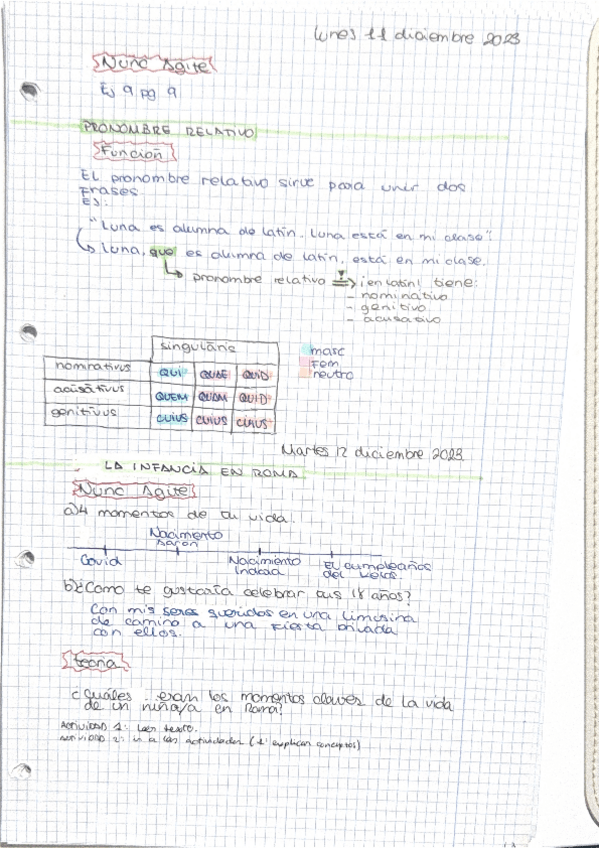 lunes 11 diciembre 2023
Nunc Agite
Ej 9 pg 9
PRONOMBRE RELATIVO
Función
El pronombre relativo sirve para unir dos
frases.
Ej:
"Luna es alumna de latín. Luna está en mi clase".
Luna, que es alumna de latín, está en mi clase.
pronombre relativo ⇒ ¡en latín! tiene:
- nominativo
- genitivo
- acusativo
singulāris
nominativus
QUI QUAE QUID
acūsātīvus
QUEM QUAM QUID
genitivus
CUIUS CUIUS CUIUS
masc
Fem
neutro
Martes 12 diciembre 2023
LA INFANCIA EN ROMA
Nunc Agite
a) 4 momentos de tu vida.
Nacimiento
Covid
Nacimiento
El cumpleaños
b) ¿Cómo te gustaría celebrar tus 18 años?
Con mis seres queridos en una limusina
de camino a una fiesta privada
con ellos.
teoría
¿Cuáles eran los momentos claves de la vida
de un niño/a en Roma?
Actividad 1: Leer texto.
Actividad 2: ir a las actividades (1' explican conceptos)